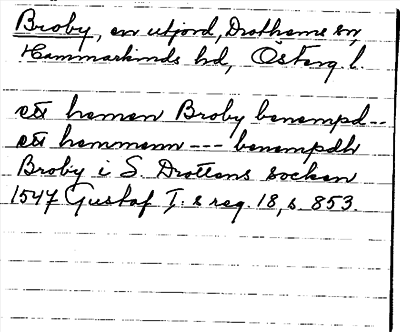 Broby, en utjord, Drothems sn,
Hammarkinds hd, Österg. l.
ett heman Broby benempd--
ett hemmenn --- benempdh
Broby i S. Drottens socken
1547 Gustaf I:s reg. 18, s. 853.